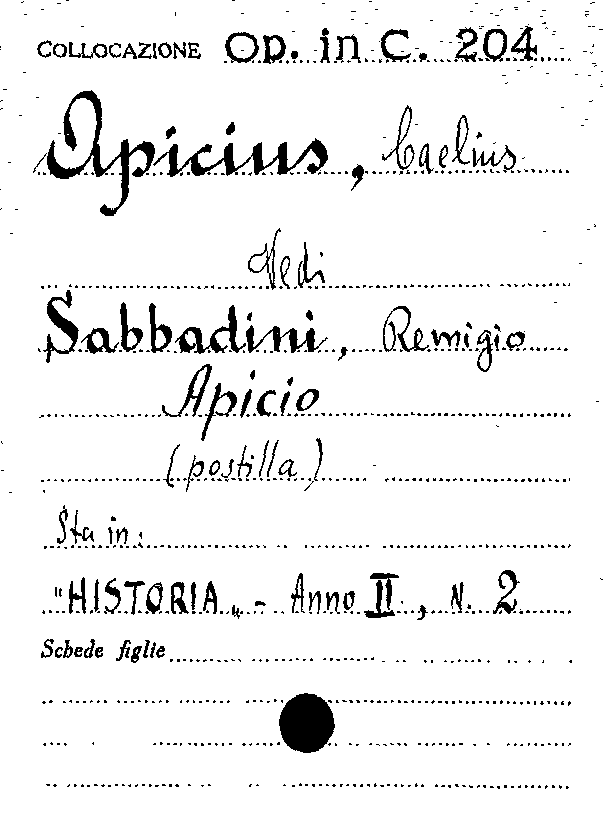 COLLOCAZIONE Op. in C. 204
Apicius, Caelius
Vedi
Sabbadini, Remigio
Apicio
(postilla)
Sta in:
"HISTORIA„ - Anno II, N. 2
Schede figlie